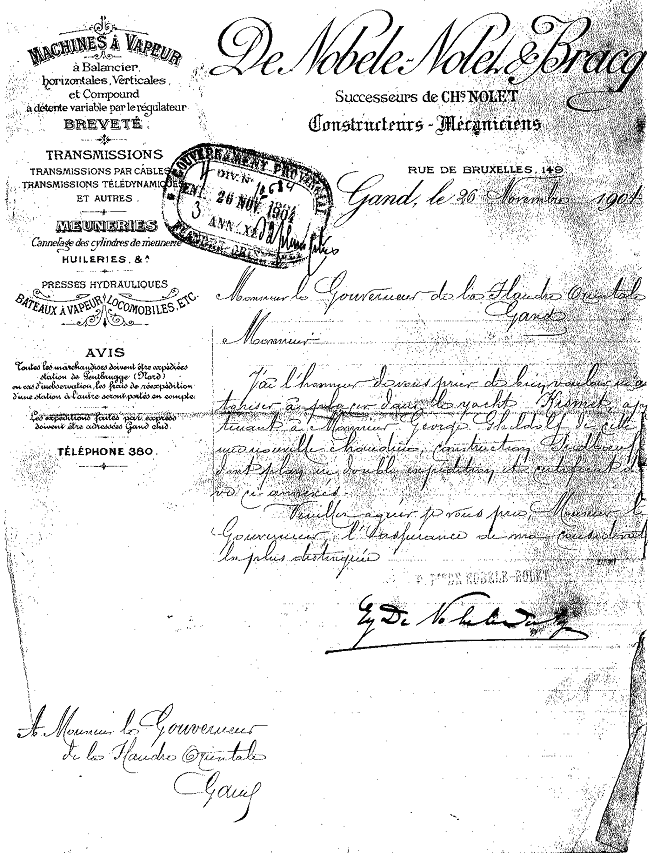 MACHINES À VAPEUR
à Balancier,
horizontales, Verticales
et Compound
à détente variable par le régulateur
BREVETÉ.
TRANSMISSIONS
TRANSMISSIONS PAR CÂBLES
TRANSMISSIONS TÉLÉDYNAMIQUES
ET AUTRES.
MEUNERIES
Cannelage des cylindres de meunerie
HUILERIES, &ᴬ
PRESSES HYDRAULIQUES
BATEAUX À VAPEUR, LOCOMOBILES, ETC.
AVIS
Toutes les marchandises doivent être expédiées
station de Gentbrugge (Nord)
en cas d'inobservation, les frais de réexpédition
d'une station à l'autre seront portés en compte.
Les expéditions faites par exprès
doivent être adressées Gand sud.
TÉLÉPHONE 380.
De Nobele-Nolet & Bracq
Successeurs de CHˢ NOLET
Constructeurs-Mécaniciens
RUE DE BRUXELLES, 149
Gand, le 26 Novembre 1904
GOUVERNEMENT PROVINCIAL
DIV. Nº
26 NOV. 1904
3 ANNEXE
FLANDRE ORIENTALE
Monsieur le Gouverneur de la Flandre Orientale
Gand
Monsieur
J'ai l'honneur de vous prier de bien vouloir m'au
toriser à placer dans le yacht
à Monsieur George de cette
une nouvelle chaudière, construction
dont plan en double expédition et certificat
ci-annexés.
Veuillez agréer je vous prie, Monsieur le
Gouverneur, l'assurance de ma considération
la plus distinguée
DE NOBELE-NOLET
De Nobele
A Monsieur le Gouverneur
de la Flandre Orientale
Gand